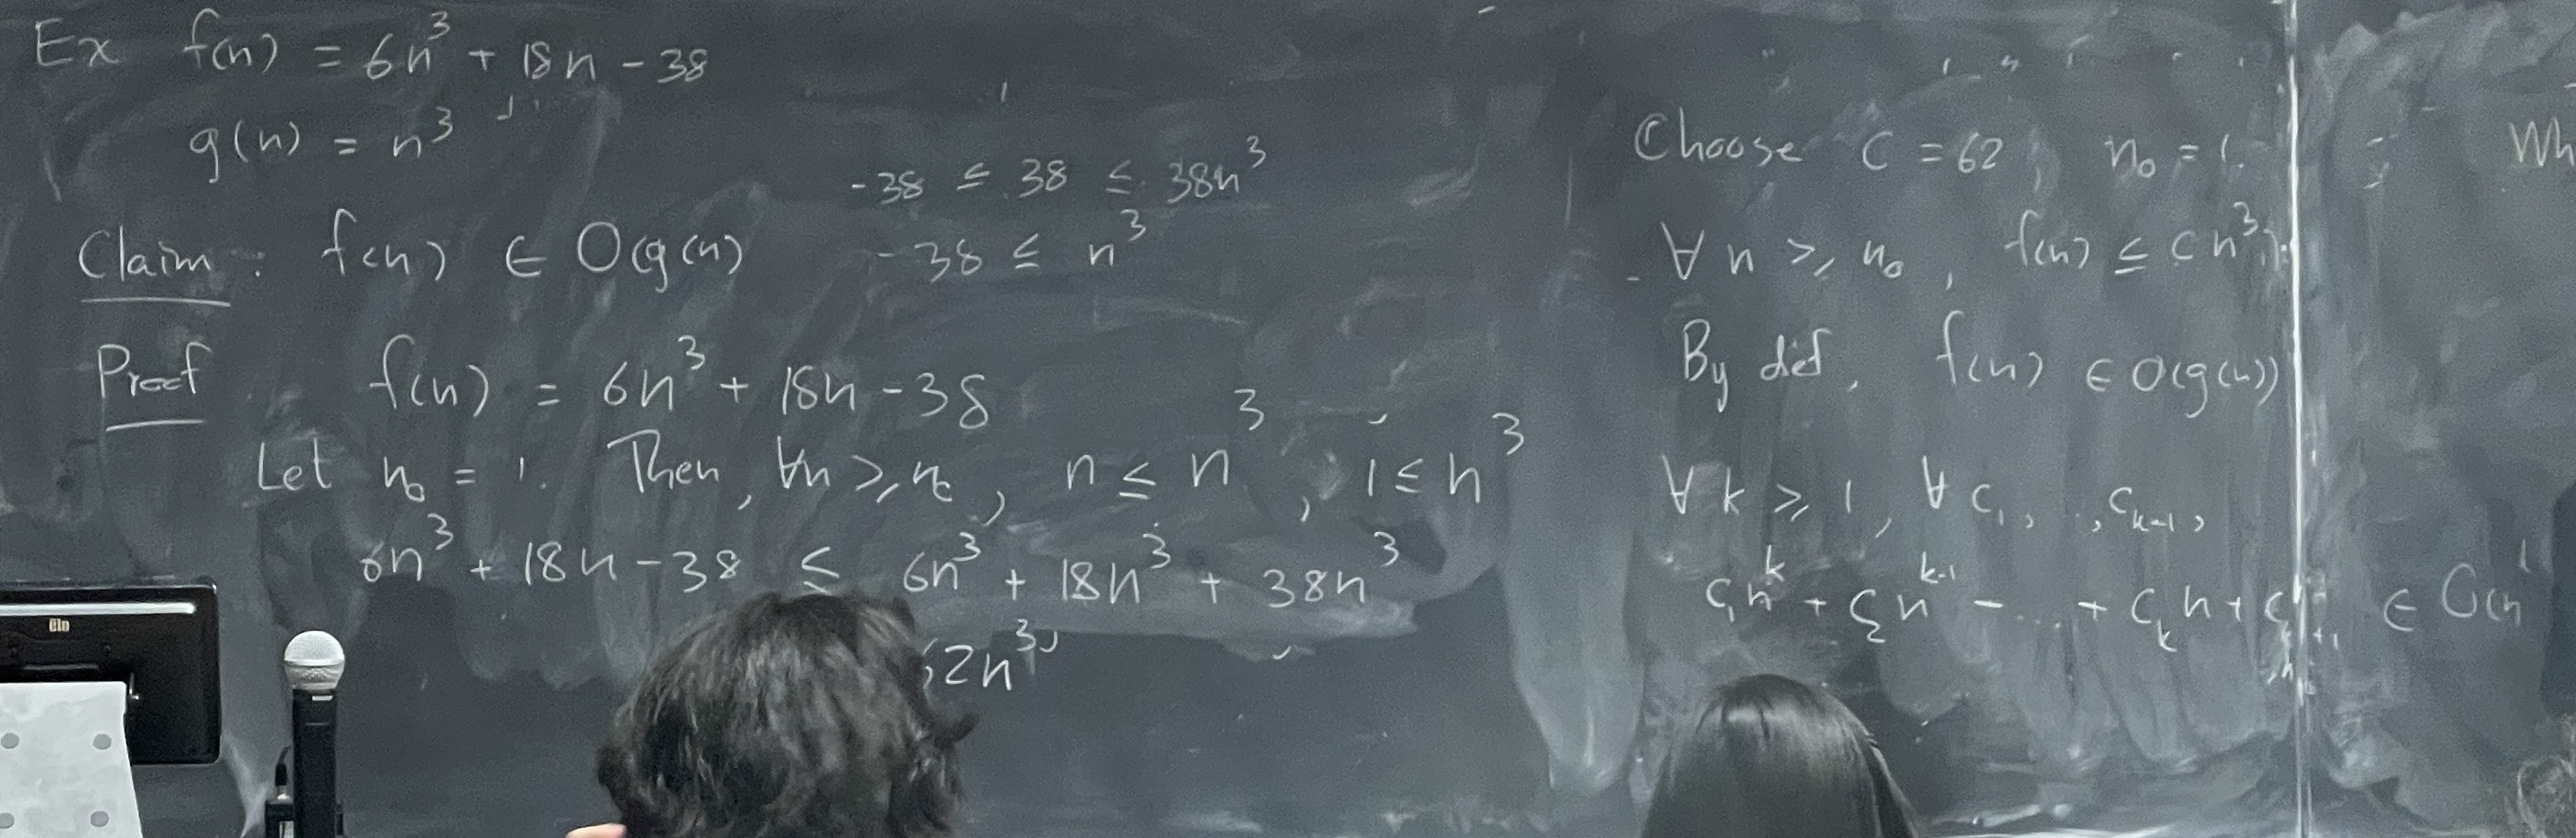 Ex f(n) = 6n³ + 18n - 38
g(n) = n³
-38 ≤ 38 ≤ 38n³
-38 ≤ n³
Claim: f(n) ∈ O(g(n)
Proof f(n) = 6n³ + 18n - 38
Let n₀ = 1. Then, ∀n ≥ n₀, n ≤ n³, 1 ≤ n³
6n³ + 18n - 38 ≤ 6n³ + 18n³ + 38n³
62n³
Choose C = 62, n₀ = 1.
∀ n ≥ n₀, f(n) ≤ C n³.
By def, f(n) ∈ O(g(n))
∀ k ≥ 1, ∀ c₁, .., cₖ₋₁,
c₁nᵏ + c₂nᵏ⁻¹ - ... + cₖn + cₖ₊₁ ∈ O(n
elo